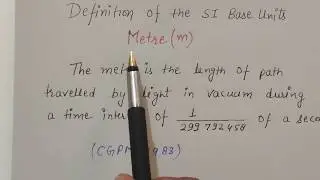 Definition of the SI Base Units
Metre (m)
The metre is the length of path
travelled by light in vacuum during
a time of 1/299 792 458 of a
(CGPM 1983)